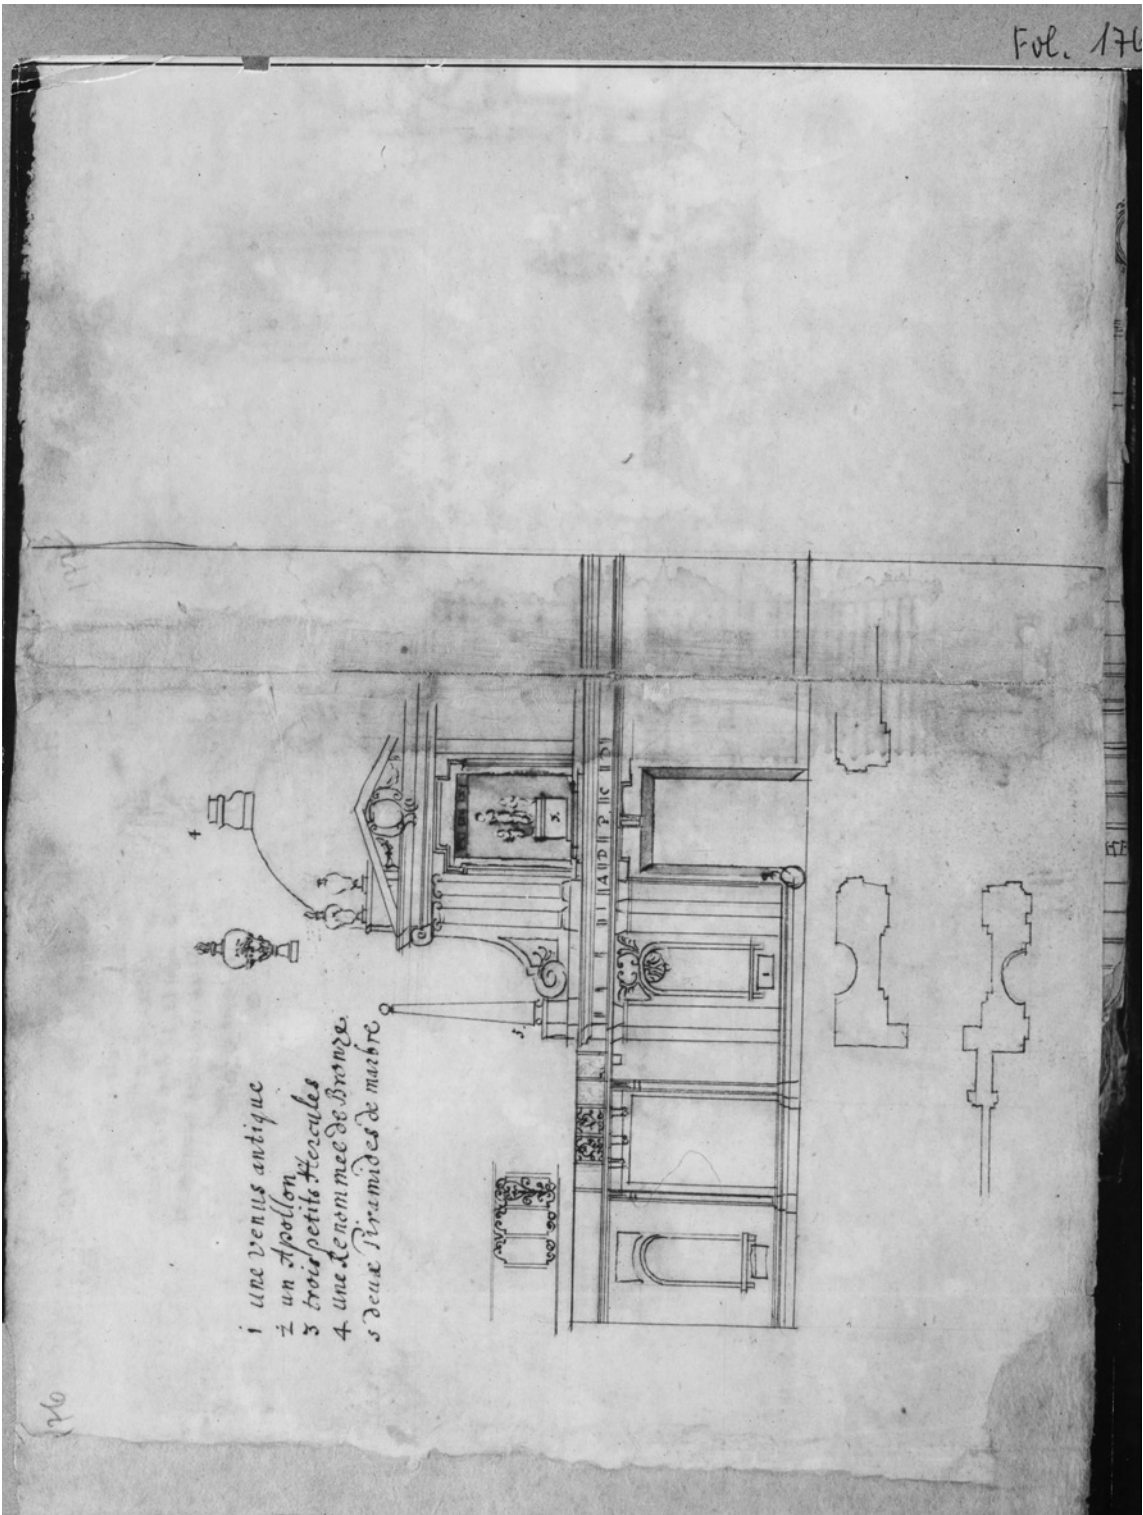 Fol. 176
1 une venus antique
2 un Apollon
3 trois petits Hercules
4 une Renommee de Bronze.
5 deux Piramides de marbre
4
5.
3.
A D P C D
1
176